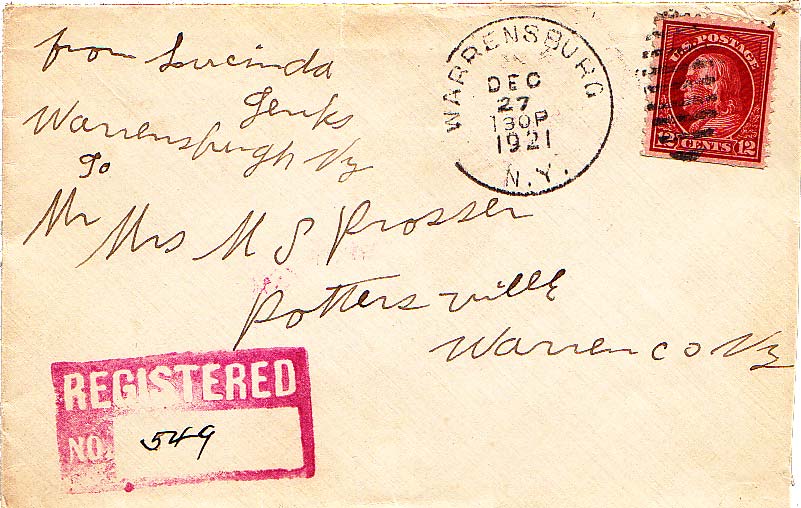 from Lucinda
Jenks
Warrensburgh Ny
To
Mr Mrs M S Prosser
Pottersville
Warren co Ny
WARRENSBURG
DEC
27
130P
1921
N.Y.
U.S. POSTAGE
12 CENTS 12
REGISTERED
NO. 549